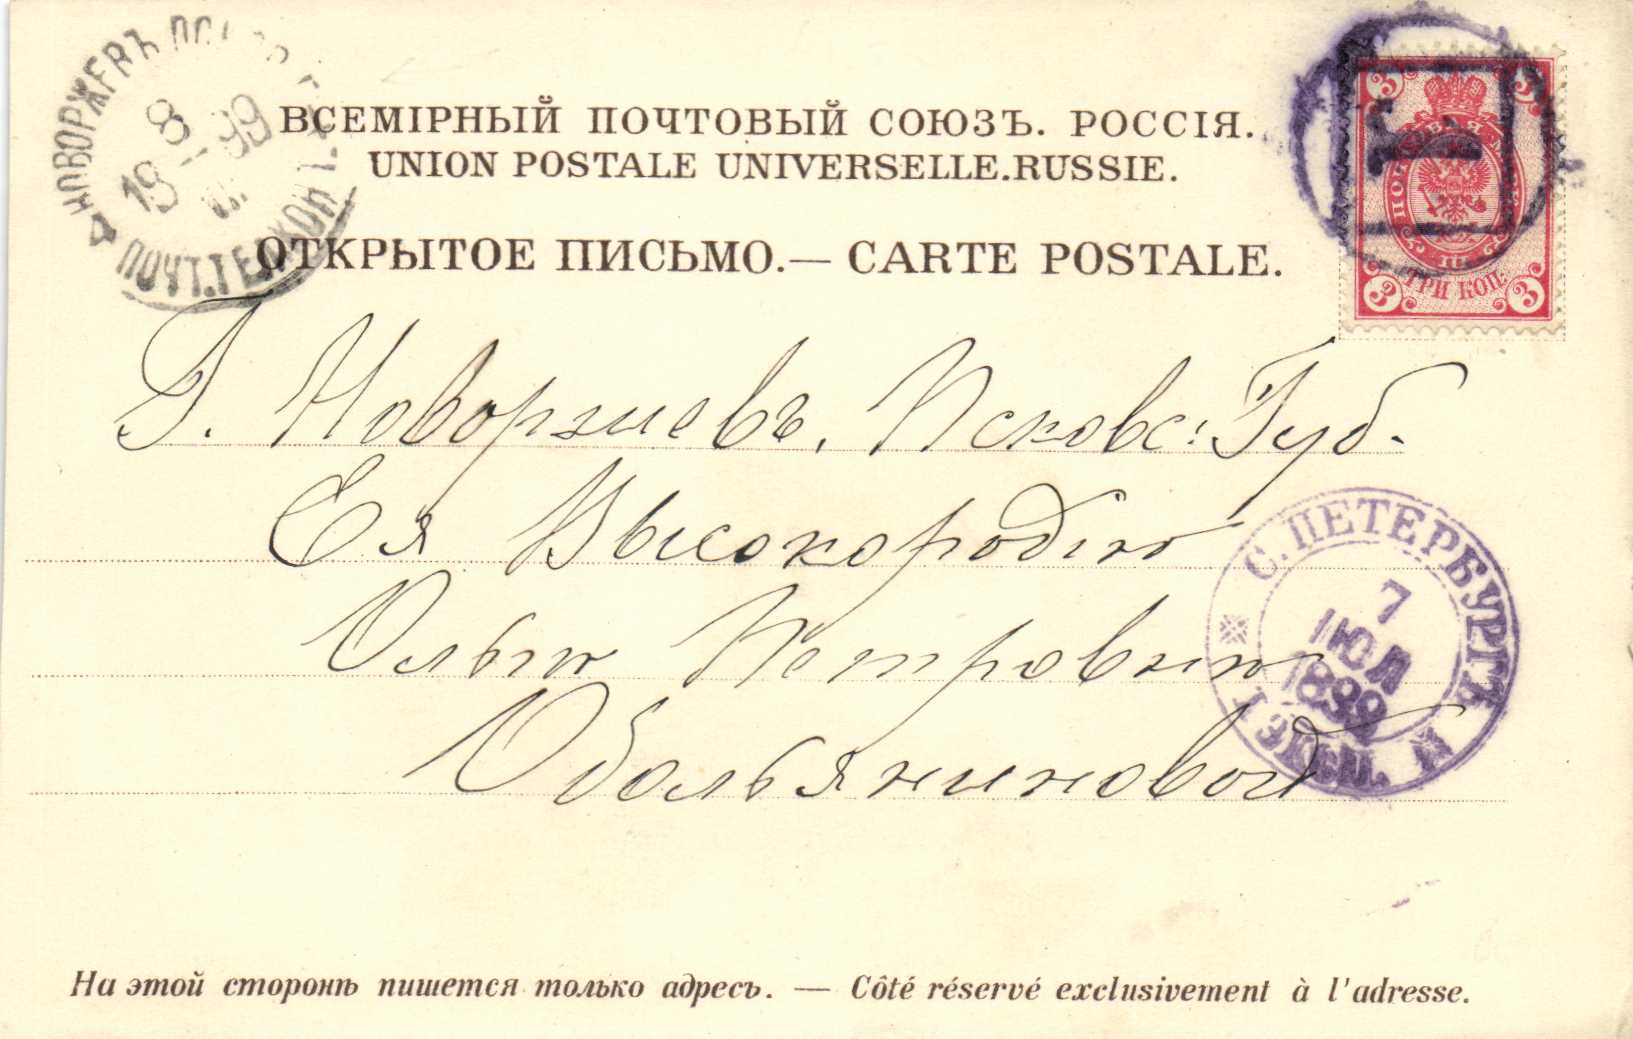 ВСЕМІРНЫЙ ПОЧТОВЫЙ СОЮЗЪ. РОССІЯ.
UNION POSTALE UNIVERSELLE.RUSSIE.
ОТКРЫТОЕ ПИСЬМО.— CARTE POSTALE.
НОВОРЖЕВЪ
8
18 – 99
VII
ПОЧТ.ТЕЛ.КОН
1
3 3
ТРИ КОП.
3 3
Г. Новоржевъ, Псковс: Губ.
Ея Высокородію
Ольгѣ Петровнѣ
Обольяниновой
С. ПЕТЕРБУРГЪ
7
ІЮЛ
1899
І ЭКСП.
На этой сторонѣ пишется только адресъ. — Côté réservé exclusivement à l'adresse.